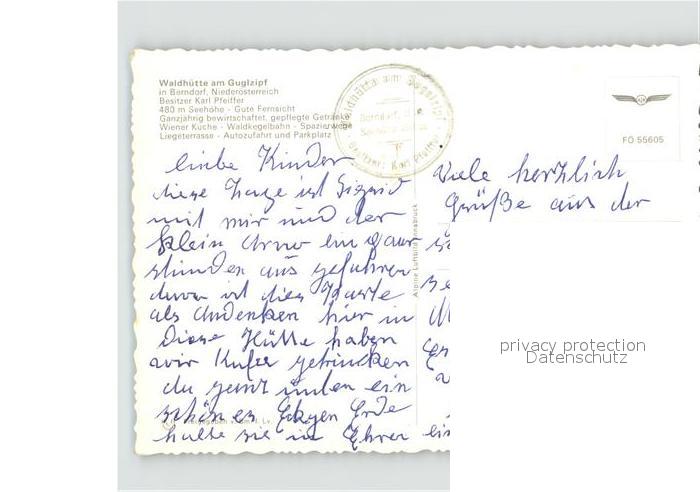 Waldhütte am Guglzipf
in Berndorf, Niederösterreich
Besitzer Karl Pfeiffer
480 m Seehöhe - Gute Fernsicht
Ganzjährig bewirtschaftet, gepflegte Getränke
Wiener Küche - Waldkegelbahn - Spazierwege
Liegeterrasse - Autozufahrt und Parkplatz
Waldhütte am Guglzipf
Berndorf,
Besitzer: Karl Pfeiffer
FO 55605
liebe Kinder
diese Tage ist Sigrid
mit mir und der
klein Arno ein paar
stunden aus gefahren
davon ist dies Karte
als Andenken hier in
Diese Hütte haben
wir Kafee getrunken
du ganz unten ein
schönes Erde
halte sie in Ehren
Viele herzlich
Grüße aus der
ein
Alpine Luftbild Innsbruck
privacy protection
Datenschutz